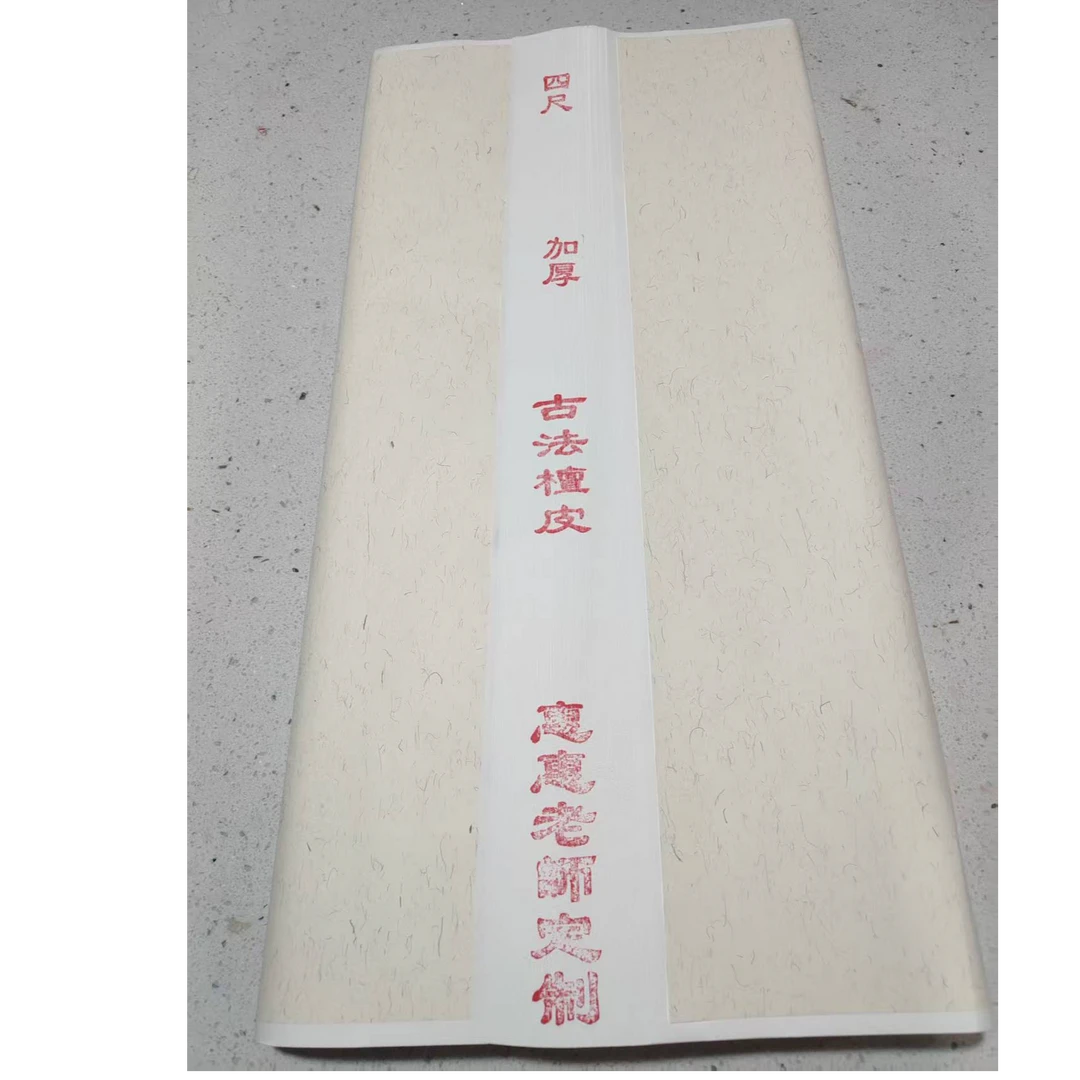 四尺
加厚
古法檀皮
惠惠老師定制